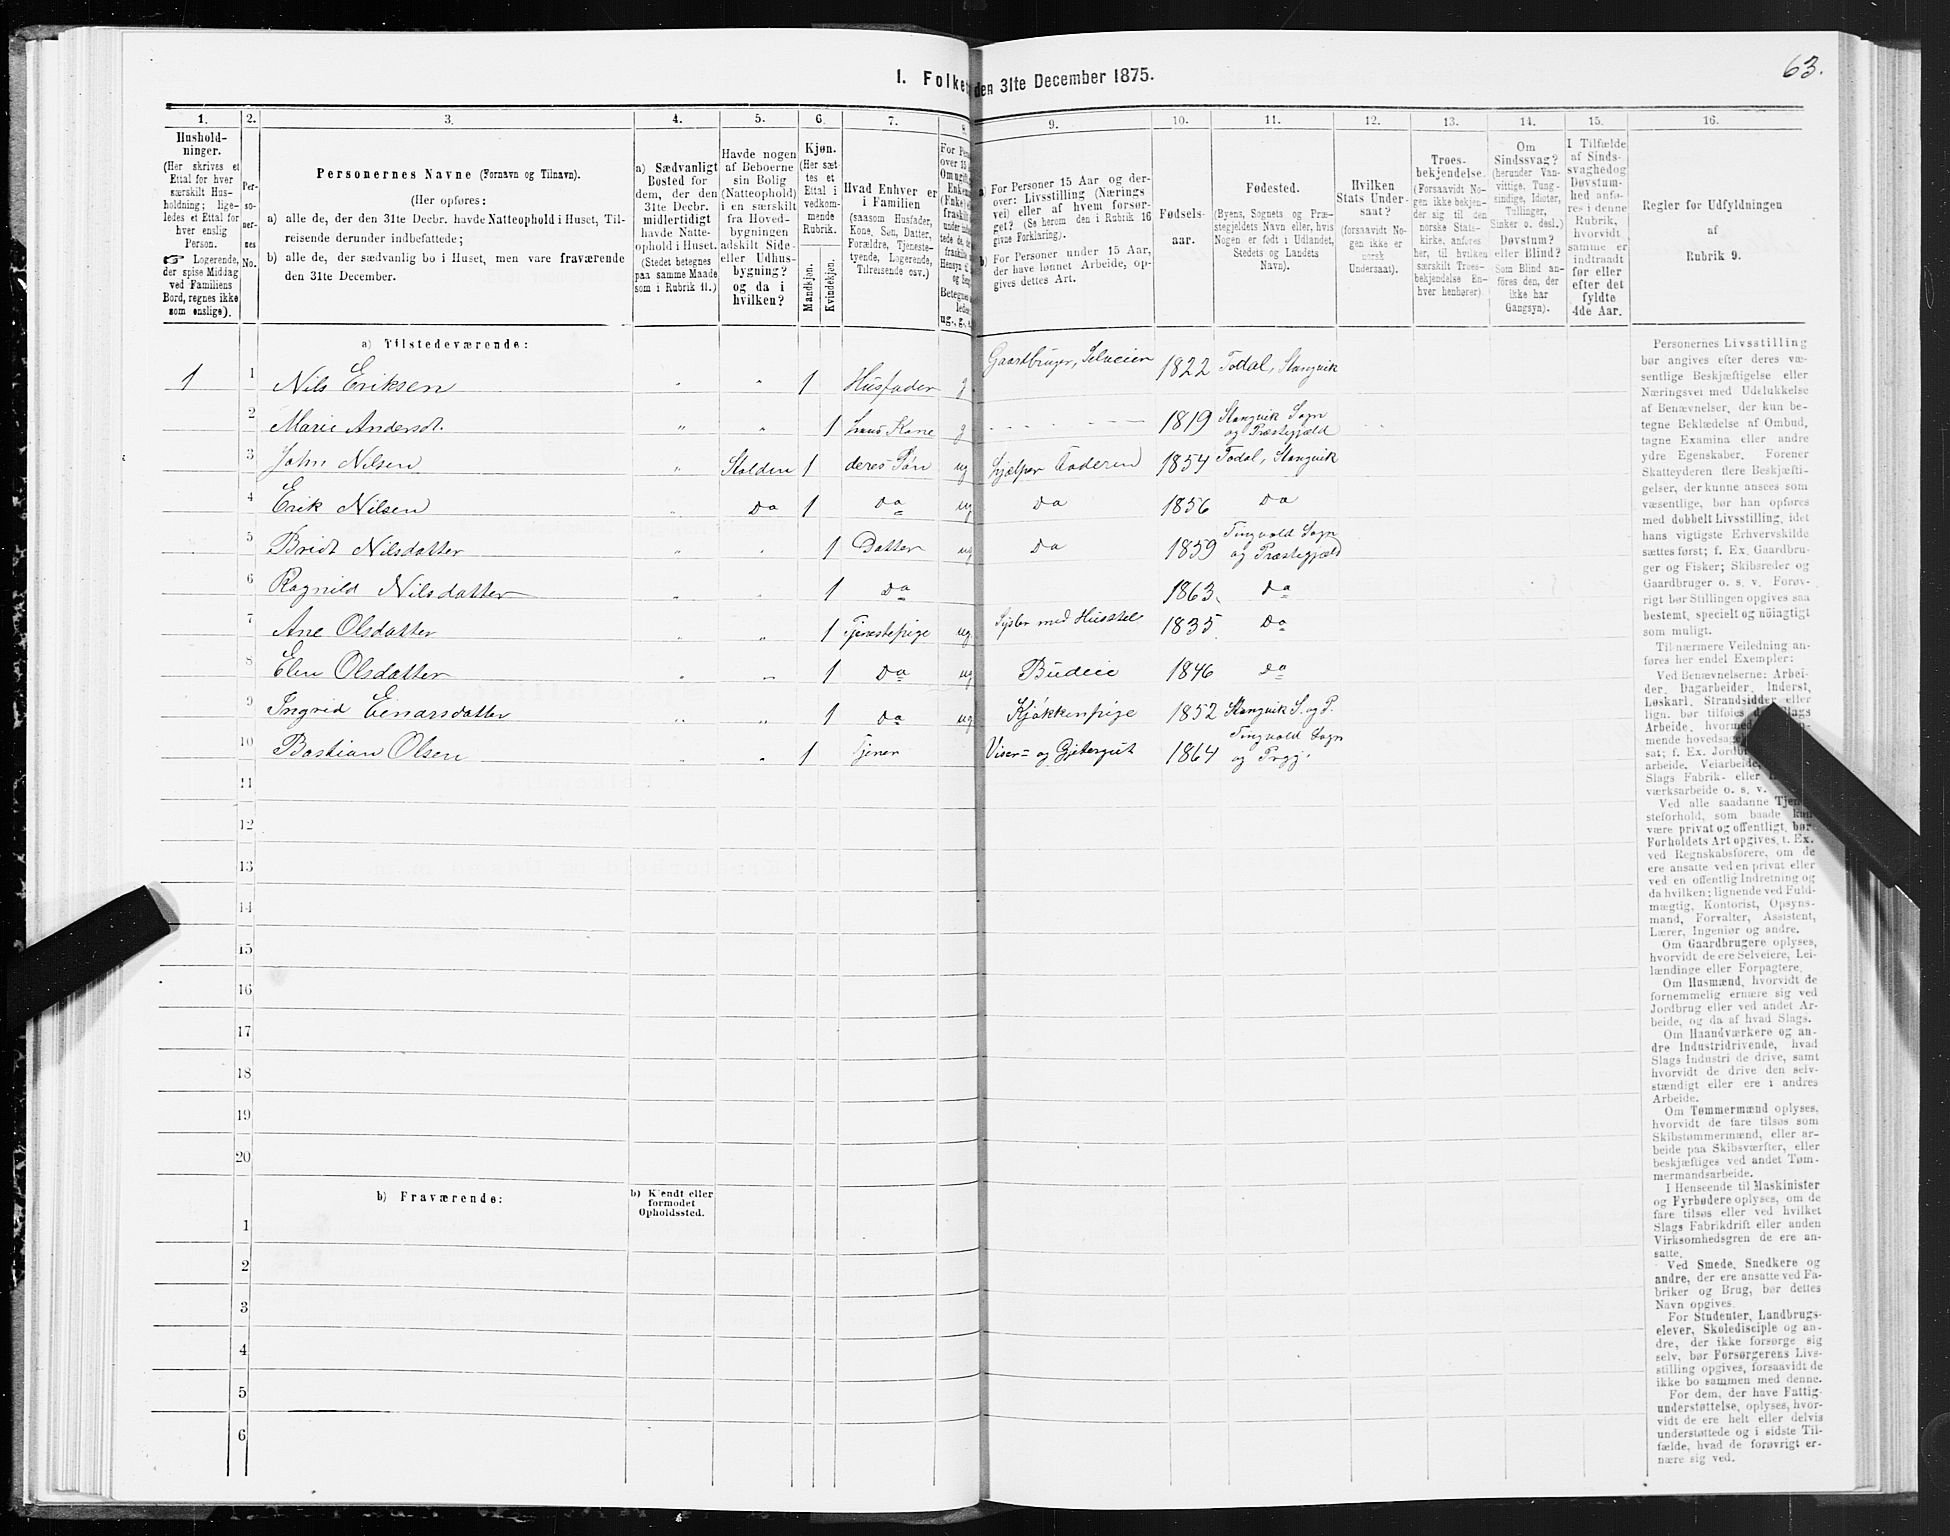 63.
1. Folket den 31te December 1875.
1. 2. 3. 4. 5. 6. 7. 8. 9. 10. 11. 12. 13. 14. 15. 16.
Hushold-
ninger.
(Her skrives et
Ettal for hver
særskilt Hus-
holdning; lige-
ledes et Ettal for
hver enslig
Person.
☞ Logerende,
der spise Middag
ved Familiens
Bord, regnes ikke
som enslige).
Per-
so-
ner-
nes
No.
Personernes Navne (Fornavn og Tilnavn).
(Her opføres:
a) alle de, der den 31te Decbr. havde Natteophold i Huset, Til-
reisende derunder indbefattede;
b) alle de, der sædvanlig bo i Huset, men vare fraværende
den 31te December.
a) Sædvanligt
Bosted for
dem, der den
31te Decbr.
midlertidigt
havde Natte-
ophold i Huset.
(Stedet betegnes
paa samme Maade
som i Rubrik 11.)
Havde nogen
af Beboerne
sin Bolig
(Natteophold)
i en særskilt
fra Hoved-
bygningen
adskilt Side-
eller Udhus-
bygning?
og da i
hvilken?
Kjøn.
(Her sæt-
tes et
Ettal i
vedkom-
mende
Rubrik.
Mandkjøn.
Kvindekjøn.
Hvad Enhver er
i Familien
(saasom Husfader,
Kone, Søn, Datter,
Forældre, Tjeneste-
tyende, Logerende,
Tilreisende osv.)
a) For Personer 15 Aar og der-
over: Livsstilling (Nærings
vei) eller af hvem forsør-
get? (Se herom den i Rubrik 16
givne Forklaring).
b) For Personer under 15 Aar,
der have lønnet Arbeide, op-
gives dettes Art.
Fødsels-
aar.
Fødested.
(Byens, Sognets og Præ-
stegjeldets Navn eller, hvis
Nogen er født i Udlandet,
Stedets og Landets
Navn).
Hvilken
Stats Under-
saat?
(forsaavidt No-
gen ikke er
norsk
Undersaat).
Troes-
bekjendelse.
(Forsaavidt No-
gen ikke bekjen-
der sig til den
norske Stats-
kirke, anføres
her, til hvilken
særskilt Troes-
bekjendelse En-
hver henhører).
Om
Sindssvag?
(herunder Van-
vittige, Tung-
sindige, Idioter,
Tullinger,
Sinker o. desl.).
Døvstum?
eller Blind?
Som Blind an-
føres den, der
ikke har
Gangsyn).
I Tilfælde
af Sinds-
svaghedog
Døvstum-
hed anfø-
res i denne
Rubrik,
hvorvidt
samme er
indtraadt
før eller
efter det
fyldte
4de Aar.
Regler for Udfyldningen
af
Rubrik 9.
a) Tilstedeværende:
1 1 Nils Eriksen „ „ 1 Husfader g Gaardbruger, Selveier 1822 Todal, Stangvik
2 Marie Andersdt. „ „ 1 hans Kone g 1819 Stangvik Sogn
og Præstegjæld
3 John Nilsen „ Stalden 1 deres Søn ug hjælper Faderen 1854 Todal, Stangvik
4 Erik Nilsen „ Do 1 Do ug Do 1856 Do
5 Bridt Nilsdatter „ „ 1 Datter ug Do 1859 Tingvold Sogn
og Præstegjæld
6 Ragnild Nilsdatter „ „ 1 Do 1863 Do
7 Ane Olsdatter „ „ 1 Tjenestepige ug Sysler med Husstel 1835 Do
8 Elen Olsdatter „ „ 1 Do ug Budeie 1846 Do
9 Ingrid Einarsdatter „ „ 1 Do ug Kjøkkenpige 1852 Stangvik S. og P.
10 Bastian Olsen „ „ 1 Tjener Viser- og Gjetergut 1864 Tingvold Sogn
og Prgj.
11
12
13
14
15
16
17
18
19
20
b) Fraværende:
b) Kjendt eller
formodet
Opholdssted.
1
2
3
4
5
6
Personernes Livsstilling
bør angives efter deres væ-
sentlige Beskjæftigelse eller
Næringsvei med Udelukkelse
af Benævnelser, der kun be-
tegne Beklædelse af Ombud,
tagne Examina eller andre
ydre Egenskaber. Forener
Skatteyderen flere Beskjæfti-
gelser, der kunne ansees som
væsentlige, bør han opføres
med dobbelt Livsstilling, idet
hans vigtigste Erhvervskilde
sættes først; f. Ex. Gaardbru-
ger og Fisker; Skibsreder og
Gaardbruger o. s. v. Forøv-
rigt bør Stillingen opgives saa
bestemt, specielt og nöiagtigt
som muligt.
Til nærmere Veiledning an-
føres her endel Exempler:
Ved Benævnelserne: Arbei-
der, Dagarbeider, Inderst,
Løskarl, Strandsidder eller
lign. bør tilføies det Slags
Arbeide, hvormed
mende hovedsa
sat; f. Ex. Jordb
arbeide, Veiarbeide,
Slags Fabrik- eller
værksarbeide o. s. v.
Ved alle saadanne Tjen
steforhold, som baade kan
være privat og offentligt, bør
Forholdets Art opgives, t. Ex.
ved Regnskabsførere, om de
ere ansatte ved en privat eller
ved en offentlig Indretning og
da hvilken; lignende ved Fuld-
mægtig, Kontorist, Opsyns-
mand, Forvalter, Assistent,
Lærer, Ingeniør og andre.
Om Gaardbrugere oplyses,
hvorvidt de ere Selveiere, Lei-
lændinge eller Forpagtere.
Om Husmænd, hvorvidt de
fornemmelig ernære sig ved
Jordbrug eller ved andet Ar-
beide, og da af hvad Slags.
Om Haandværkere og an-
dre Industridrivende, hvad
Slags Industri de drive, samt
hvorvidt de drive den selv-
stændigt eller ere i andres
Arbeide.
Om Tømmermænd oplyses,
hvorvidt de fare tilsøs som
Skibstømmermænd, eller ar-
beide paa Skibsværfter, eller
beskjæftiges ved andet Tøm-
mermandsarbeide.
I Henseende til Maskinister
og Fyrbødere oplyses, om de
fare tilsøs eller ved hvilket
Slags Fabrikdrift eller anden
Virksomhedsgren de ere an-
satte.
Ved Smede, Snedkere og
andre, der ere ansatte ved Fa-
briker og Brug, bør dettes
Navn opgives.
For Studenter, Landbrugs-
elever, Skoledisciple og an-
dre, der ikke forsørge sig
selv, bør Forsørgerens Livs-
stilling opgives, forsaavidt de
ikke bo sammen med denne.
For dem, der have Fattig-
understøttelse, oplyses, hvor-
vidt de ere helt eller delvis
understøttede og i sidste Til-
fælde, hvad de forøvrigt er-
nære sig ved.